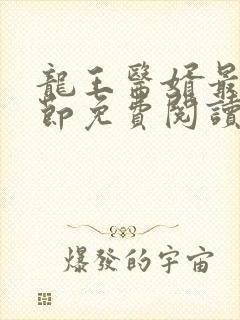 龍王醫婿最
節免費閱讀
爆發的宇宙